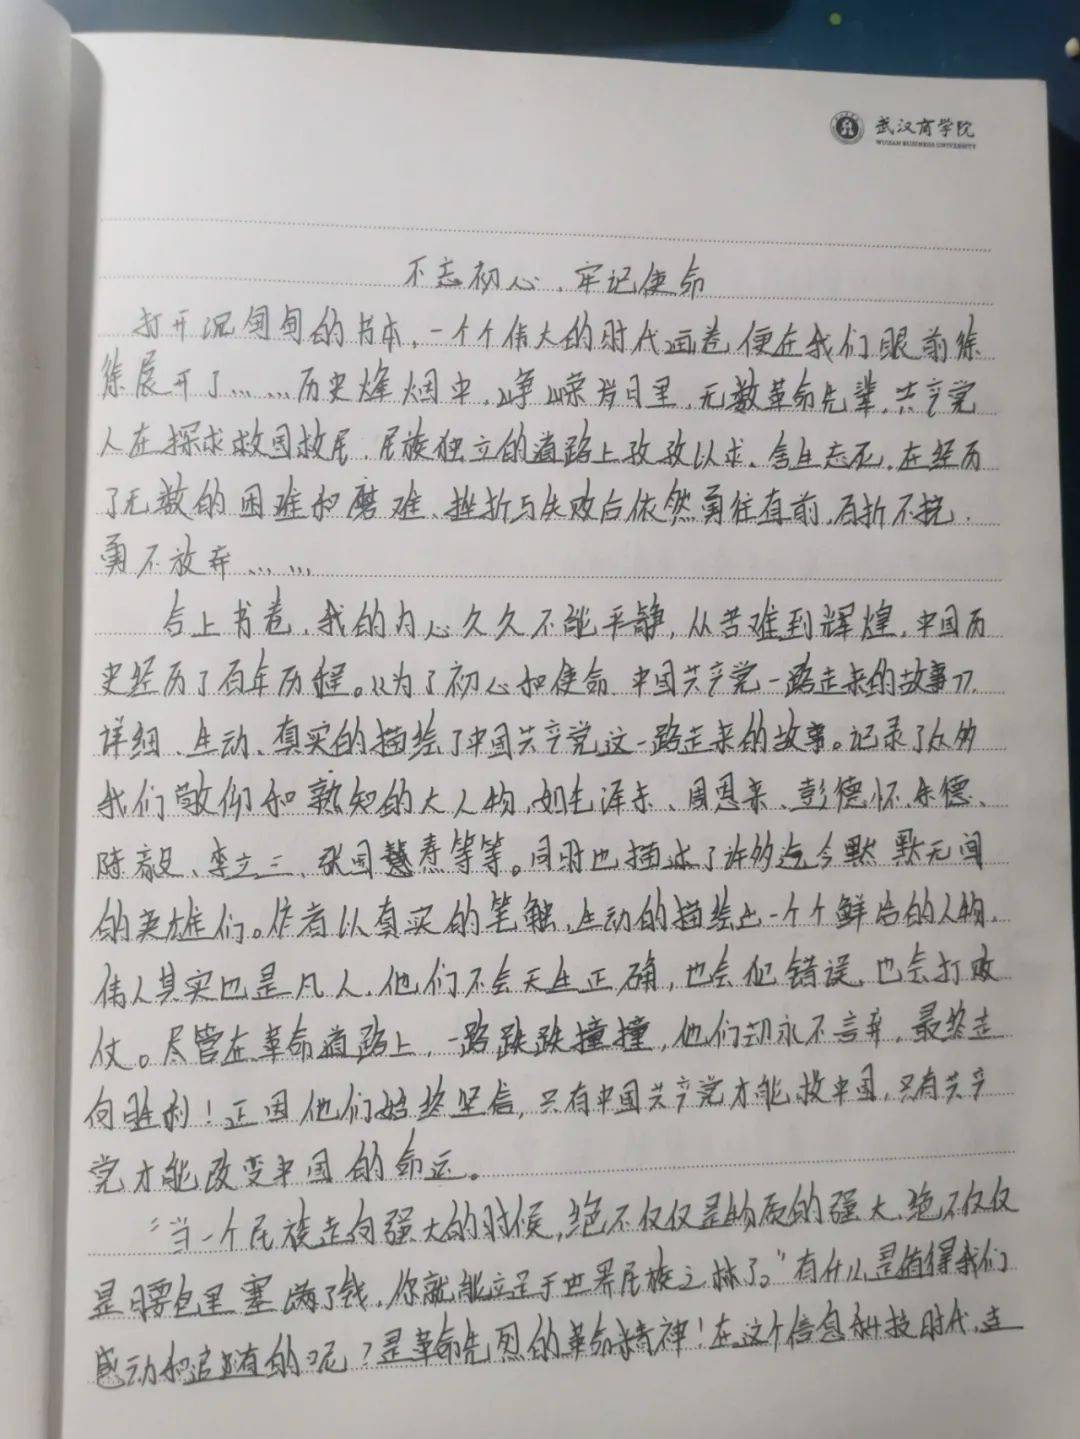 武汉商学院
WUHAN BUSINESS UNIVERSITY
不忘初心、牢记使命
打开沉甸甸的书本，一个个伟大的时代画卷便在我们眼前徐
徐展开了……历史烽烟中，峥嵘岁月里，无数革命先辈，共产党
人在探求救国救民、民族独立的道路上孜孜以求、舍生忘死，在经历
了无数的困难和磨难、挫折与失败后依然勇往直前，百折不挠，
勇不放弃……
合上书卷，我的内心久久不能平静，从苦难到辉煌，中国历
史经历了百年历程。《为了初心和使命 中国共产党一路走来的故事》
详细、生动、真实的描绘了中国共产党这一路走来的故事。记录了众多
我们敬仰和熟知的大人物，如毛泽东、周恩来、彭德怀、朱德、
陈毅、李立三、张国焘等等。同时也描述了许多迄今默默无闻
的英雄们。作者以真实的笔触，生动的描绘出一个个鲜活的人物，
伟人其实也是凡人，他们不会天生正确，也会犯错误，也会打败
仗。尽管在革命道路上，一路跌跌撞撞，他们却永不言弃，最终走
向胜利！正因他们始终坚信，只有中国共产党才能救中国，只有共产
党才能改变中国的命运。
“当一个民族走向强大的时候，绝不仅仅是物质的强大，绝不仅仅
是腰包里塞满了钱，你就能立足于世界民族之林了。”有什么是值得我们
感动和追随的呢？是革命先烈的革命精神！在这个信息科技时代，走